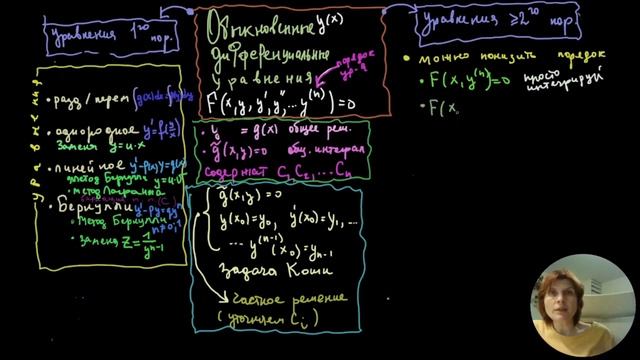 уравнения 1го пор.
Обыкновенные y(x)
дифференциальные
уравнения
порядок ур-я
F(x, y, y', y'', ... y⁽ⁿ⁾) = 0
уравнения ≥2го пор.
• можно понизить порядок
• F(x, y⁽ⁿ⁾) = 0 просто интегрируй
• F(x,
уравнения
• разд/перем
• однородное y' = f(y/x)
Замена y = u·x
• линейное
• метод Бернулли y = u·v
• метод Лагранжа
• Бернулли y' - py = qyⁿ
n ≠ 0; 1
• метод Бернулли
• замена Z = 1/yⁿ⁻¹
• y = g(x) общее реш.
• g̃(x, y) = 0 общ. интеграл
содержат C₁ C₂, ... Cₙ
g̃(x, y) = 0
y(x₀) = y₀, y'(x₀) = y₁, ...
... y⁽ⁿ⁻¹⁾(x₀) = yₙ₋₁
Задача Коши
частное решение
(уточняем Cᵢ)